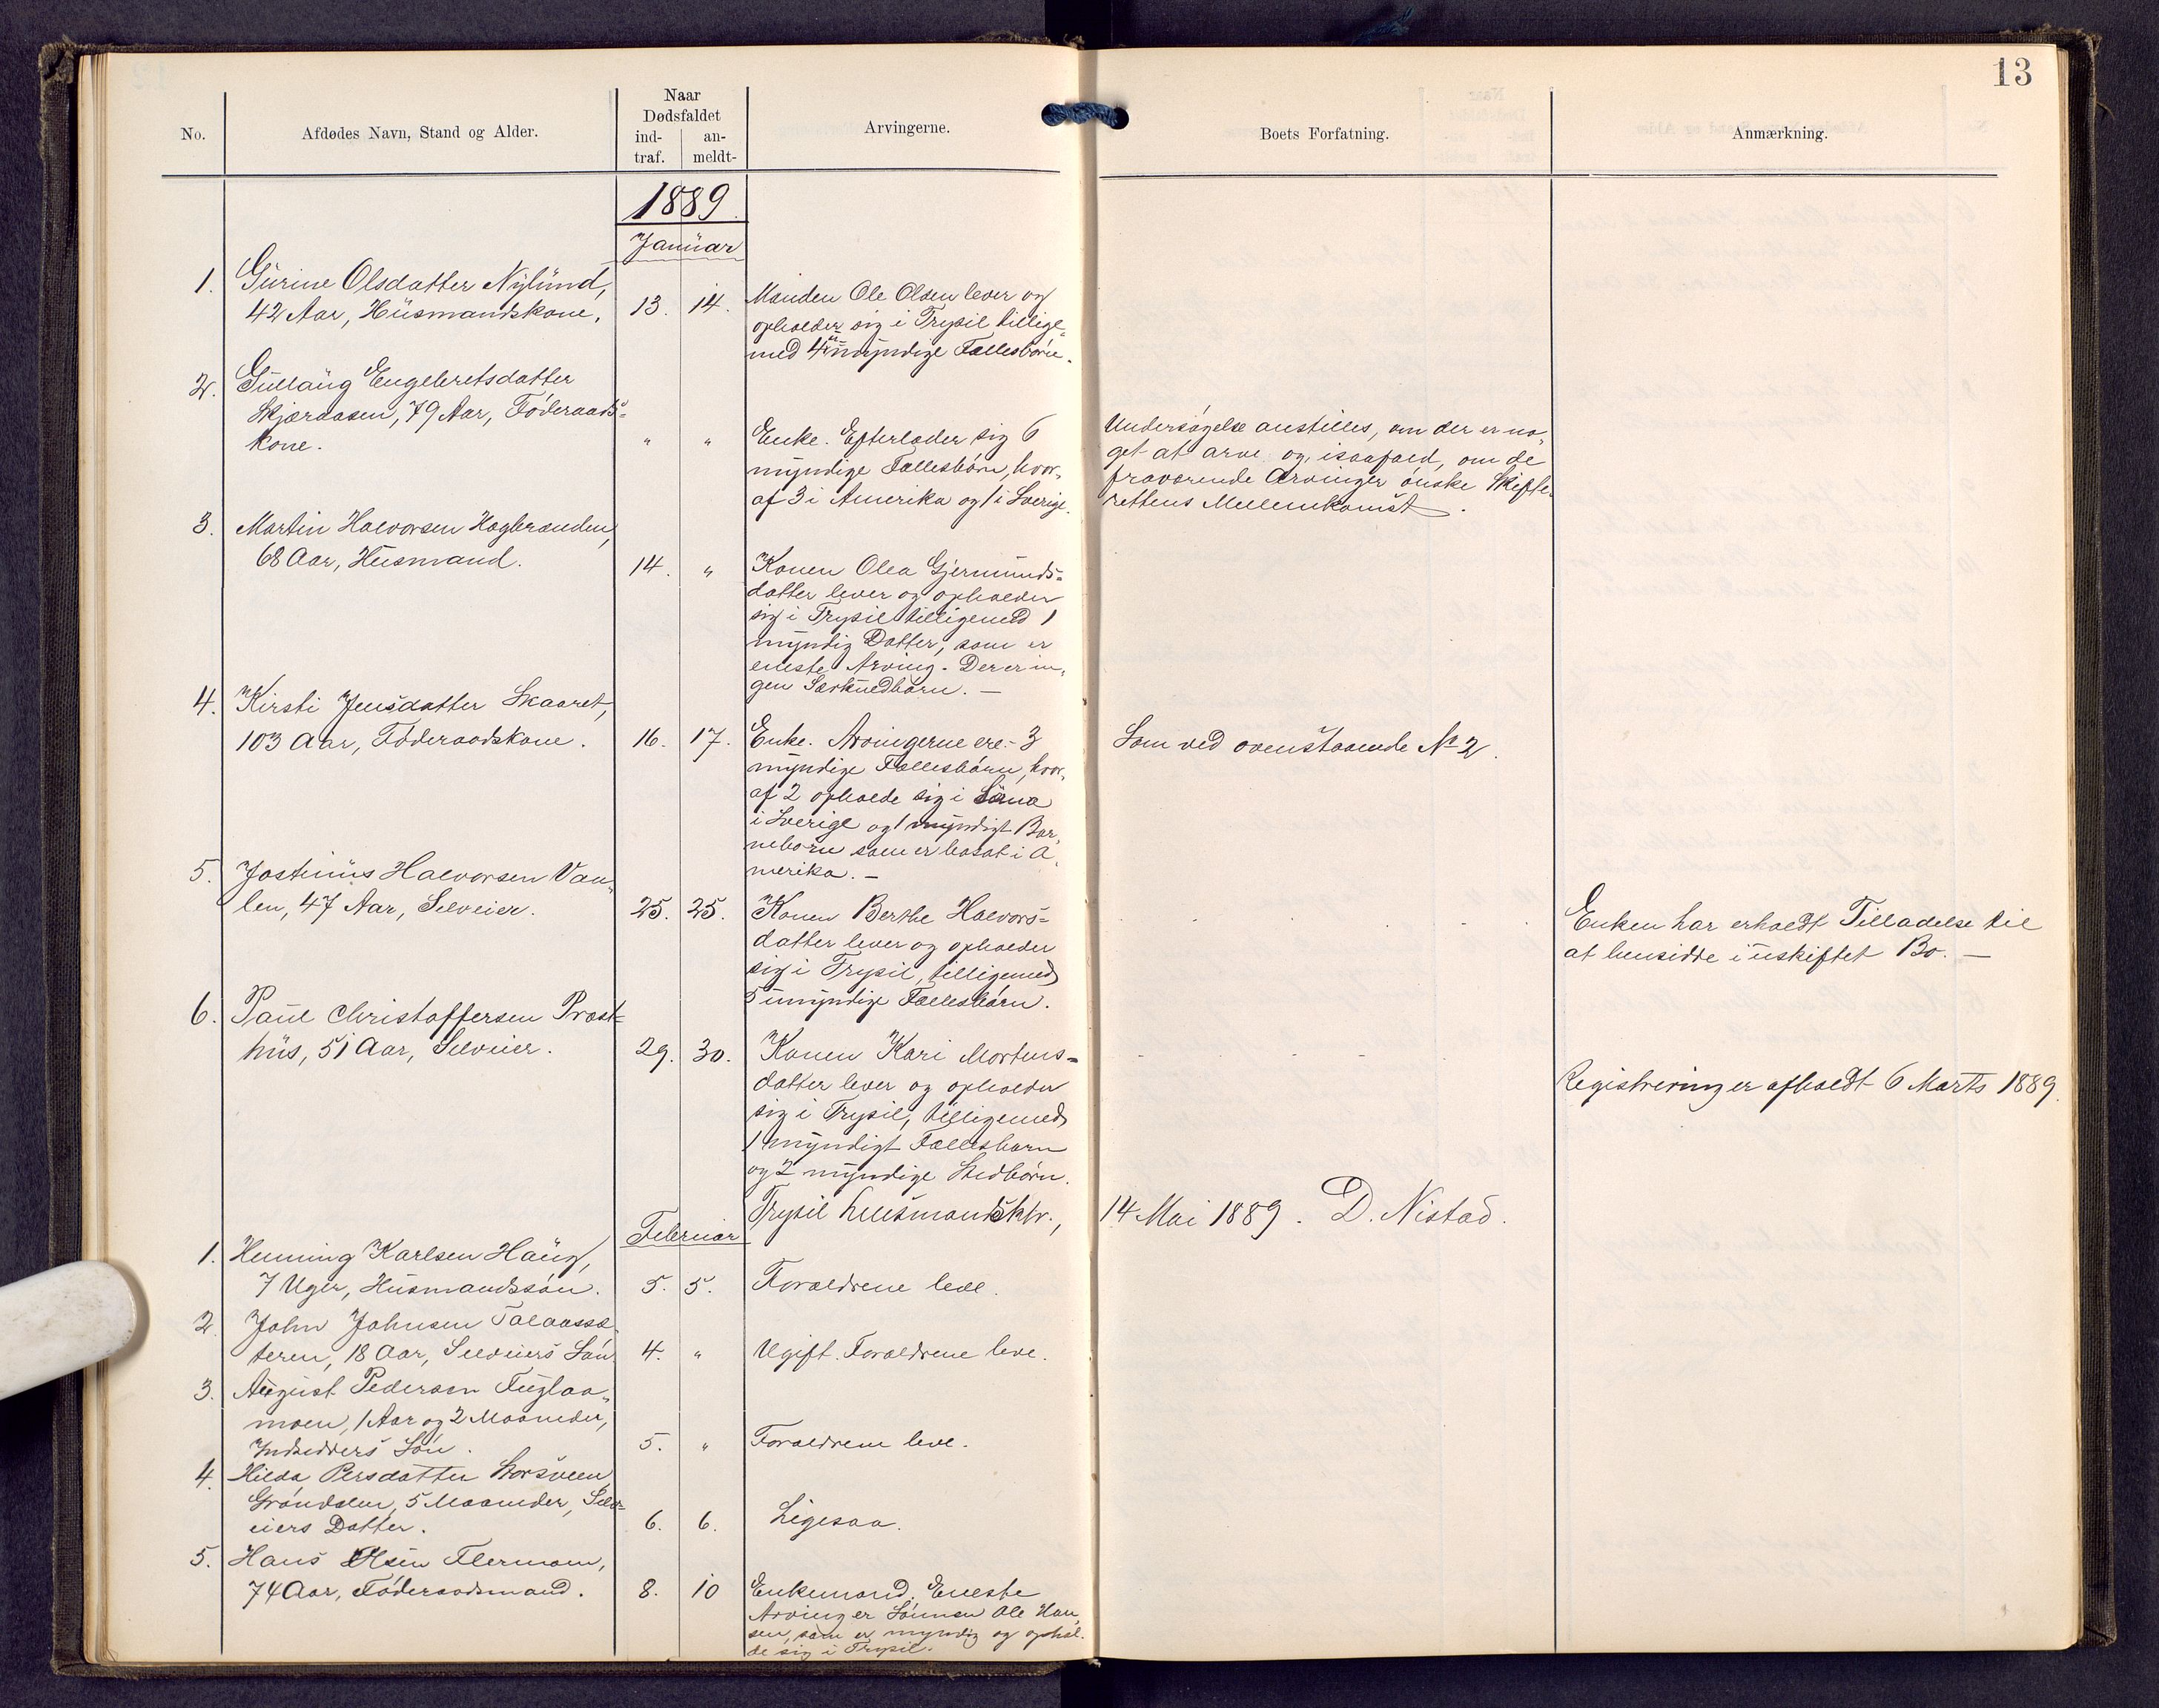 13
No.
Afdødes Navn, Stand og Alder.
Naar
Dødsfaldet
ind-
traf.
an-
meldt-
Arvingerne.
Boets Forfatning.
Anmærkning.
1889.
Januar
1. Gurine Olsdatter Nylund,
42 Aar, Husmandskone. 13. 14.
Manden Ole Olsen lever og
opholder sig i Trysil tillige-
med 4 umyndige Fællesbørn.
2. Gullaug Engebretsdatter
Skjæraasen, 79 Aar, Föderaads-
kone. " "
Enke. Efterlader sig 6
myndige Fællesbörn, hvor-
af 3 i Amerika og 1 i Sverige.
Undersøgelse anstilles, om der er no-
get at arve og, isaafald, om de
fraværende Arvinger ønske Skifte-
rettens Mellemkomst.
3. Martin Halvorsen Hogbrænden,
68 Aar, Husmand. 14. "
Konen Olea Gjermunds-
datter lever og opholder
sig i Trysil tilligemed 1
myndig Datter, som er
eneste Arving. Der er in-
gen Særkuldbörn. —
4. Kirsti Jensdatter Skaaret,
103 Aar, Föderaadskone. 16. 17.
Enke. Arvingerne ere: 3
myndige Fællesbörn, hvor-
af 2 opholde sig i Särna
i Sverige og 1 myndigt Bar-
nebarn som er bosat i A-
merika. —
Som ved ovenstaaende No 2.
5. Jostinus Halvorsen Van-
len, 47 Aar, Selveier. 25. 25.
Konen Berthe Halvors-
datter lever og opholder
sig i Trysil, tilligemed
5 umyndige Fællesbörn.
Enken har erholdt Tilladelse til
at hensidde i uskiftet Bo. —
6. Paul Christoffersen Præst-
hus, 51 Aar, Selveier. 29. 30.
Konen Kari Mortens-
datter lever og opholder
sig i Trysil, tilligemed
1 myndigt Fællesbarn
og 2 myndige Stedbörn.
Registrering er afholdt 6 Marts 1889.
Trysil Lensmandsktr., 14 Mai 1889. D. Nistad.
Februar
1. Henning Karlsen Haug,
7 Uger, Husmandssön. 5. 5.
Forældrene leve.
2. John Johnsen Galaassæ-
teren, 18 Aar, Selveiers Sön 4. "
Ugift. Forældrene leve.
3. August Pedersen Fuglaa-
moen, 1 Aar og 2 Maaneder,
Indsidders Sön. 5. "
Forældrene leve.
4. Hilda Persdatter Storsveen
Gröndalen, 5 Maaneder, Selv-
eiers Datter. 6. 6.
Ligesaa.
5. Hans Olsen Flermoen,
74 Aar, Föderaadsmand. 8. 10
Enkemand. Eneste
Arving er Sönnen Ole Han-
sen, som er myndig og ophol-
de sig i Trysil.